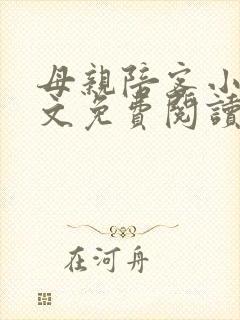 母親陪客小
文免費閱讀
在河舟